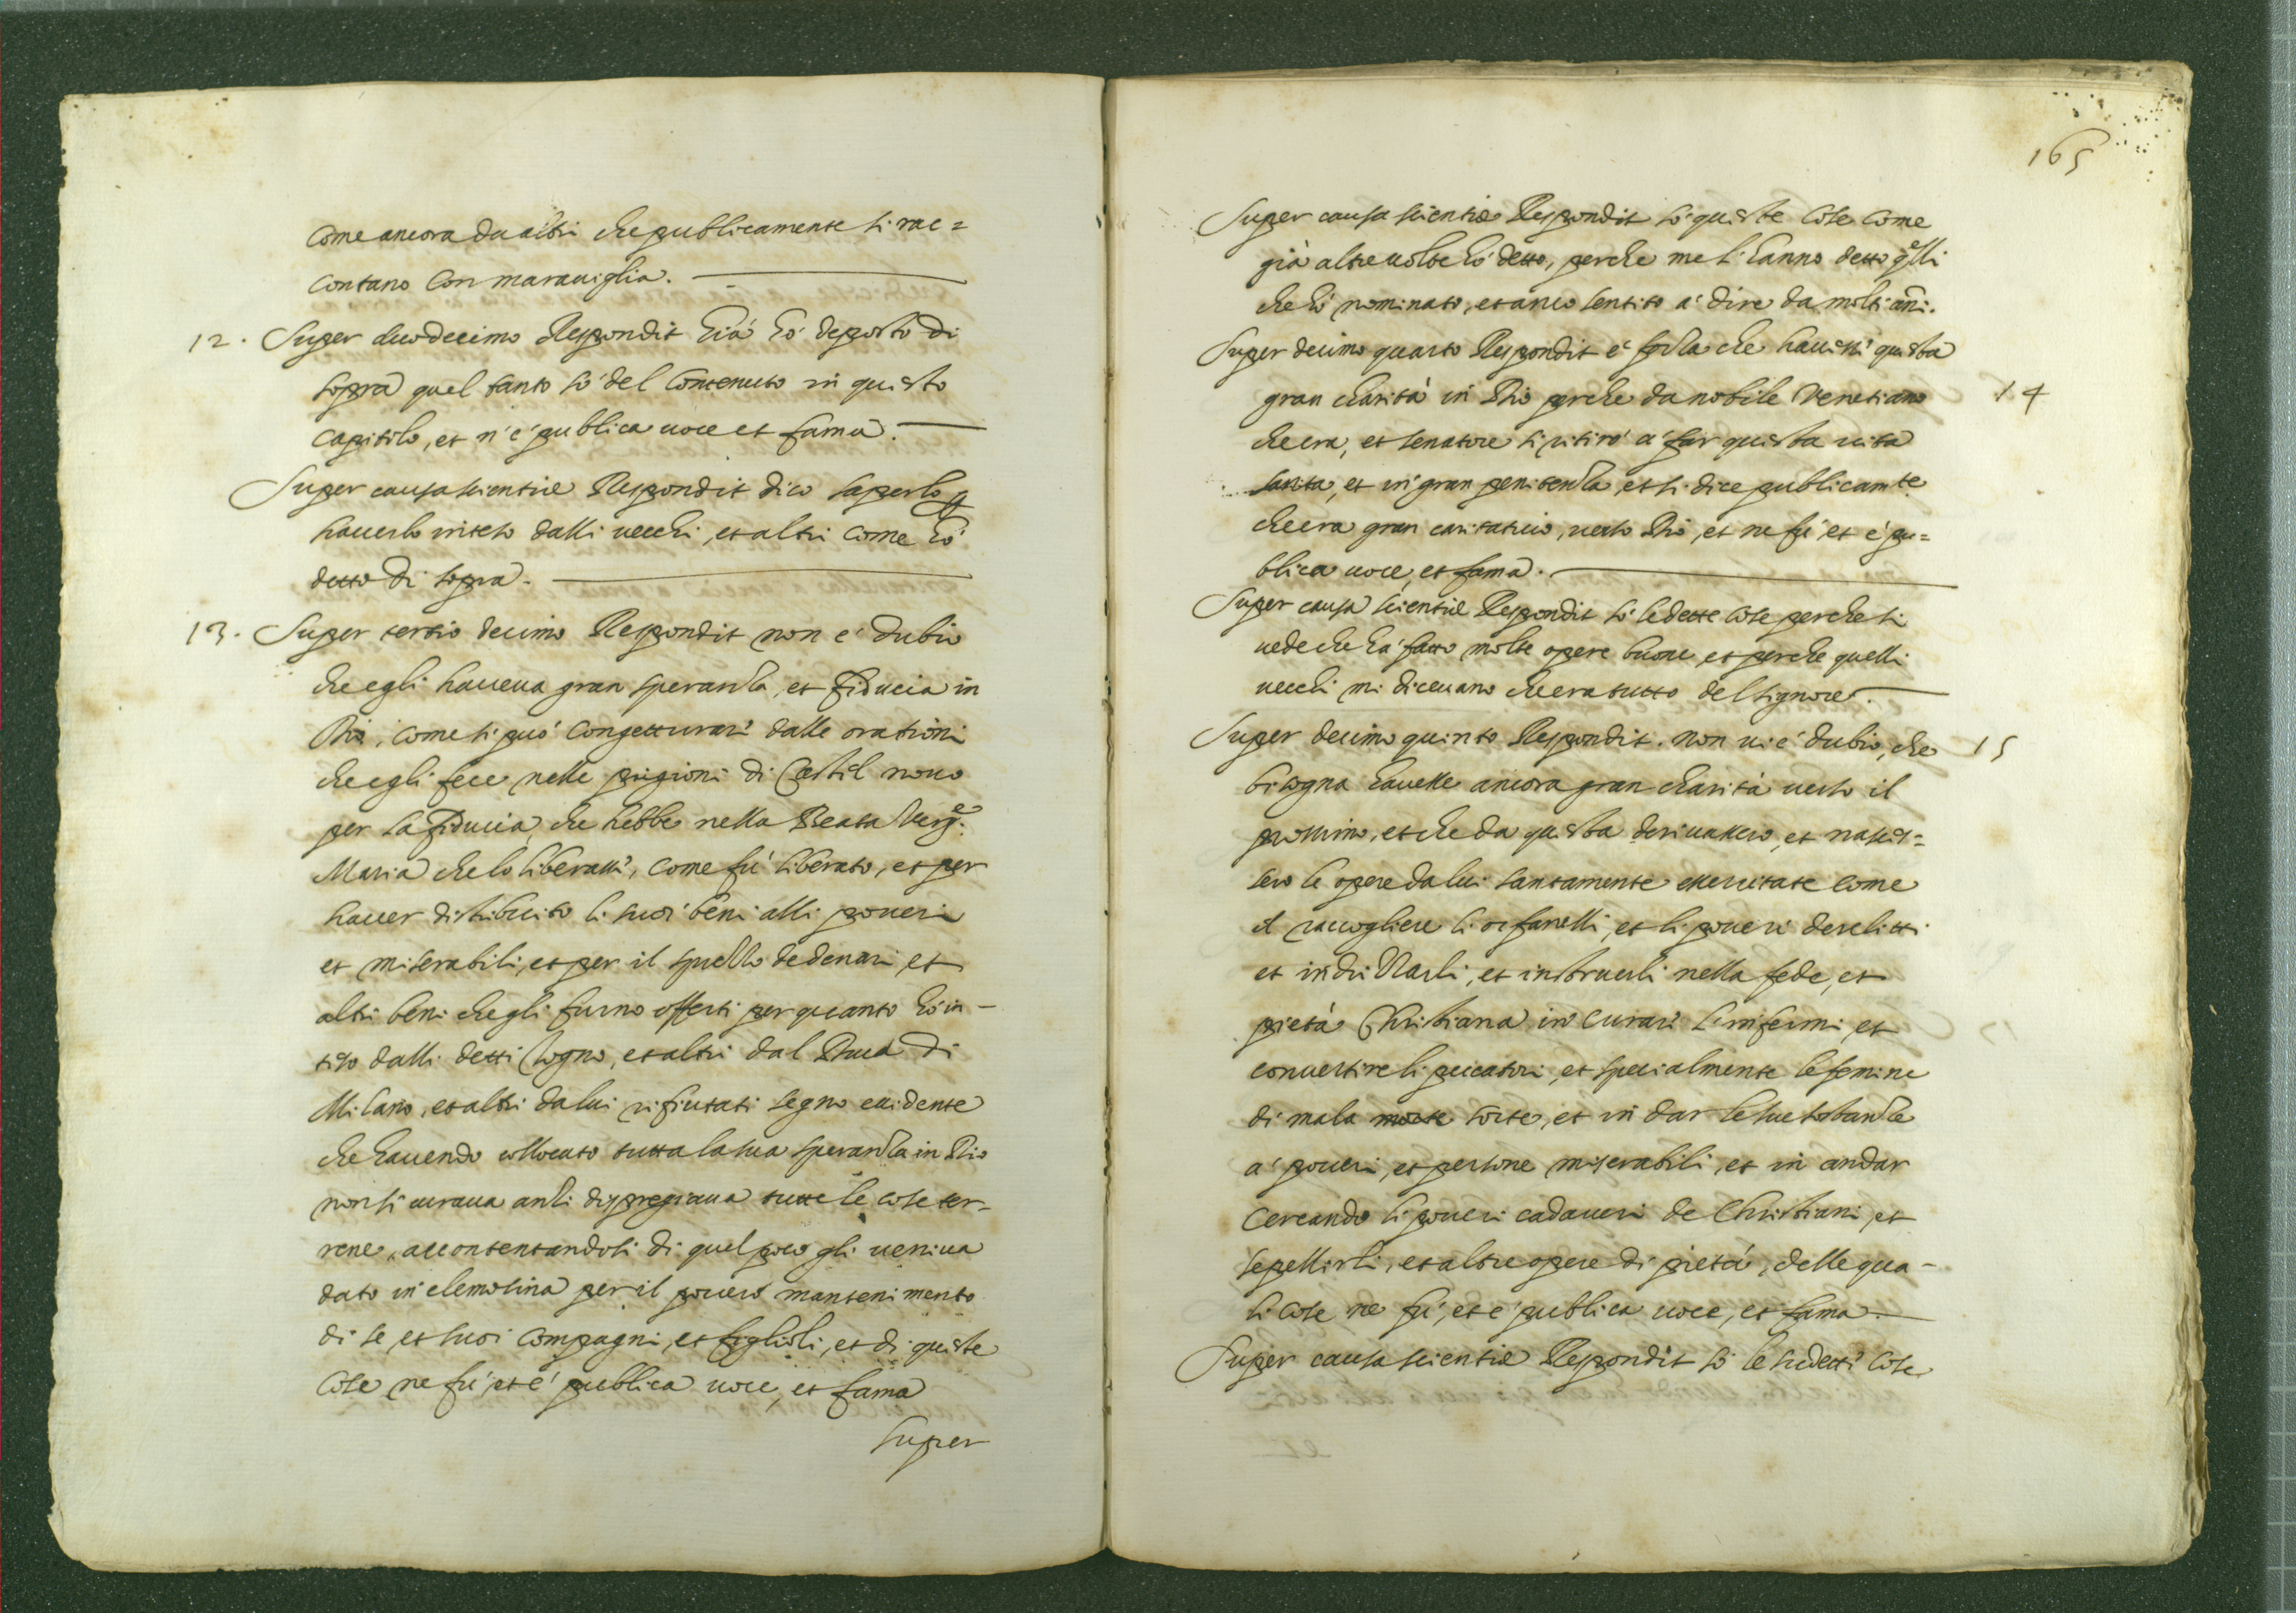 come ancora da altri che publicamente si rac=
contano con marauiglia.
12. Super duodecimo Respondit Già hò deposto di
sopra quel tanto sò del contenuto in questo
capitolo, et n'è publica uoce et fama.
Super causa scientiæ Respondit dico saperlo per
hauerlo inteso dalli uecchi, et altri come hò
detto di sopra.
13. Super tertio decimo Respondit non è dubio
che egli haueua gran speranza, et fiducia in
Dio, come si può congetturari dalle orationi
che egli fece nelle prigioni di Castel nouo
per la fiducia, che hebbe nella Beata Verg.e
Maria che lo liberassi, come fù liberato, et per
hauer distribuito li suoi beni alli poueri
et miserabili, et per il sprezzo de denari, et
altri beni che gli furno offerti per quanto hò in-
teso dalli detti Cogno, et altri dal Duca di
Milano, et altri da lui rifiutati segno euidente
che hauendo collocato tutta la sua speranza in Dio
non si curaua anzi dispregiaua tutte le cose ter-
rene, accontentandosi di quel poco gli ueniua
dato in elemosina per il pouero mantenimento
di se, et suoi compagni, et figlioli, et di queste
cose ne fù, et è publica uoce, et fama
Super
165
Super causa scientiæ Respondit sò queste cose come
già altre uolte hò detto, perche me l'hanno detto q.elli
che hò nominato, et anco sentito à dire da molti anni.
Super decimo quarto Respondit è forza che hauessi questa
gran charità in Dio perche da nobile Venetiano
14
che era, et senatore si ritirò à far questa uita
santa, et in gran penitenza, et si dice publicamte
che era gran caritatiuo, uerso Dio, et ne fù et è pu=
blica uoce, et fama.
Super causa scientiæ Respondit sò le dette cose perche si
uede che hà fatto molte opere buone et perche quelli
uecchi mi diceuano che era tutto del signore.
Super decimo quinto Respondit. non ui è dubio, che
15
bisogna hauesse ancora gran charità uerso il
prossimo, et che da questa deriuassero, et nasces=
sero le opere da lui santamente essercitate come
il raccogliere li orfanelli, et li poueri derelitti
et indrizzarli, et instruerli nella fede, et
pietà Christiana in curari l'infermi, et
conuertire li peccatori, et specialmente le femine
di mala morte sorte, et in dar le sue sostanze
a' poueri, et persone miserabili, et in andar
cercando li poueri cadaueri de Christiani, et
sepellirli, et altre opere di pietà, delle qua-
li cose ne fù, et è publica uoce, et fama.
Super causa scientiæ Respondit sò le sudetti cose